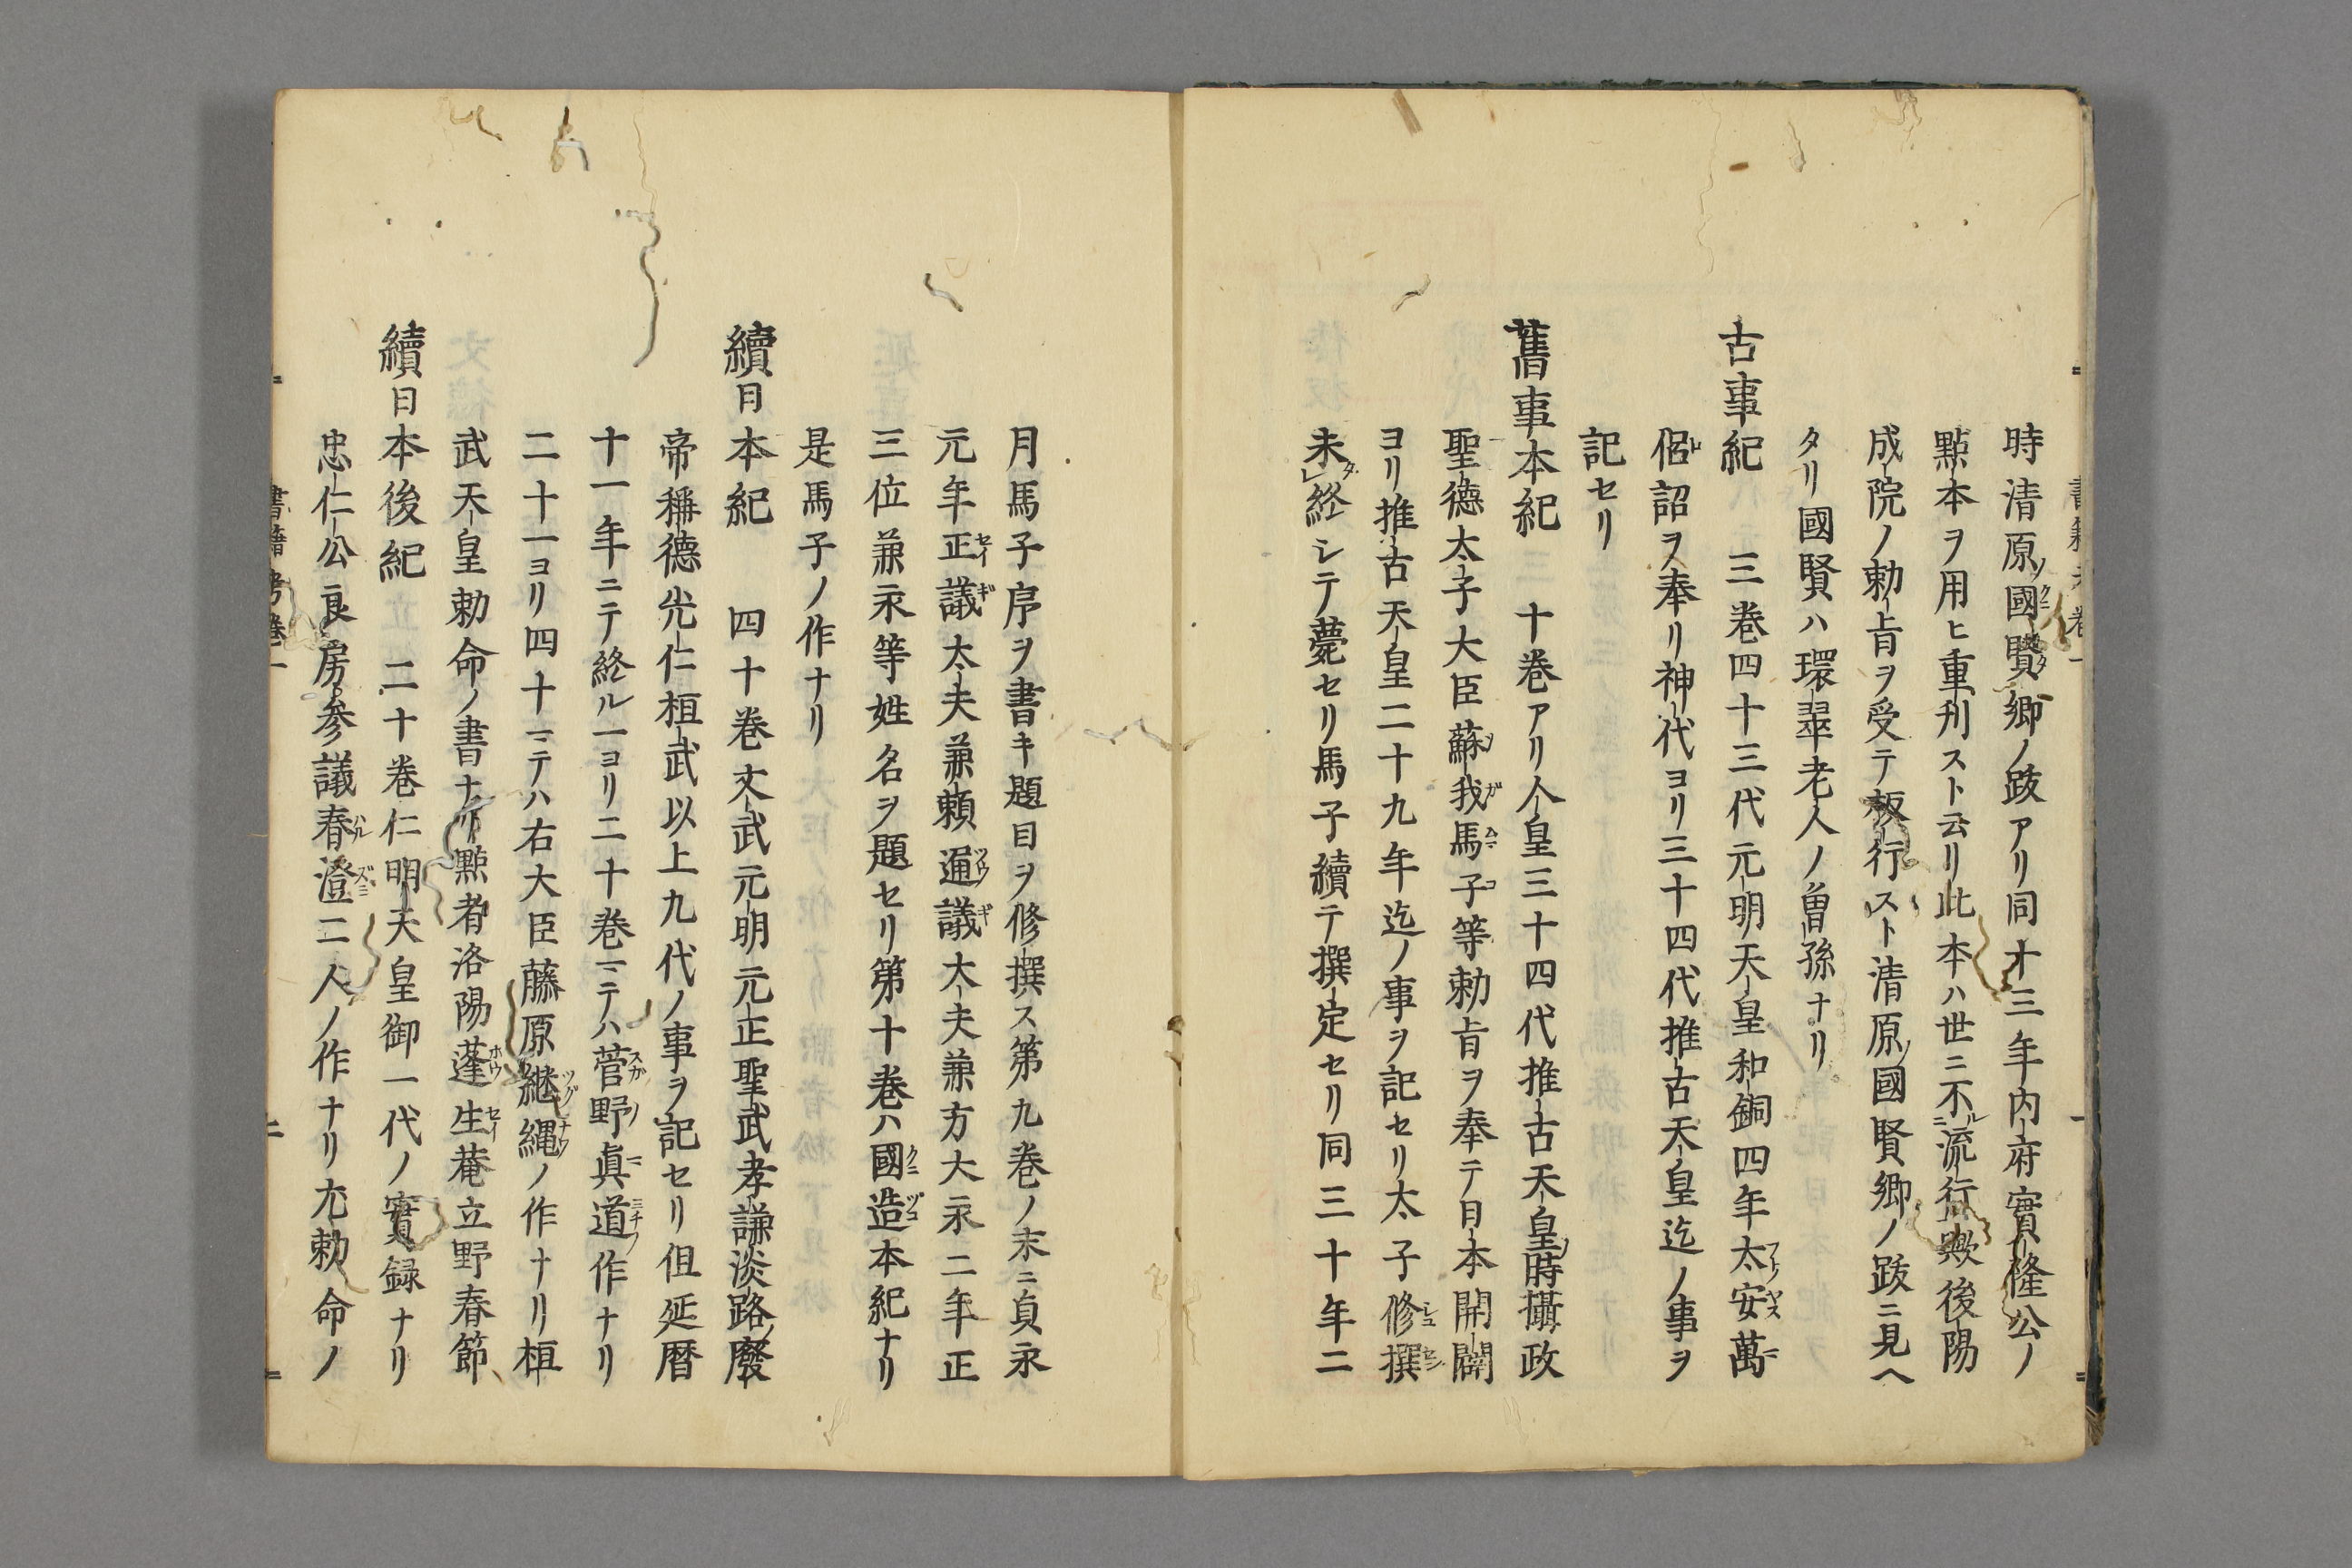 時清原ノ國賢卿ノ跋アリ同十三年内府實隆公ノ
點本ヲ用ヒ重刋スト云リ此本ハ世ニ不流行歟後陽
成院ノ勅㫖ヲ受テ板行スト清原ノ國賢卿ノ跋ニ見ヘ
タリ國賢ハ環翠老人ノ曽孫ナリ
古事紀　三巻四十三代元明天皇和銅四年太安萬
侶詔ヲ奉リ神代ヨリ三十四代推古天皇迄ノ事ヲ
記セリ
舊事本紀　十巻アリ人皇三十四代推古天皇ノ時攝政
聖德太子大臣蘇我馬子等勅㫖ヲ奉テ日本開闢
ヨリ推古天皇二十九年迄ノ事ヲ記セリ太子修撰
未レ終シテ薨セリ馬子續テ撰定セリ同三十年二
月馬子序ヲ書キ題目ヲ修撰ス第九巻ノ末ニ貞永
元年正議太夫兼頼通議大夫兼方大永二年正
三位兼永等姓名ヲ題セリ第十巻ハ國造本紀ナリ
是馬子ノ作ナリ
續日本紀　四十巻文武元明元正聖武孝謙淡路ノ廢
帝稱德光仁桓武以上九代ノ事ヲ記セリ但延暦
十一年ニテ終ル一ヨリ二十巻ニテハ菅野眞道ノ作ナリ
二十一ヨリ四十ニテハ右大臣藤原継縄ノ作ナリ桓
武天皇勅命ノ書ナリ點者洛陽蓬生菴立野春節
續日本後紀　二十巻仁明天皇御一代ノ實録ナリ
忠仁公良房参議春澄二人ノ作ナリ尤勅命ノ
書籍考巻一
二